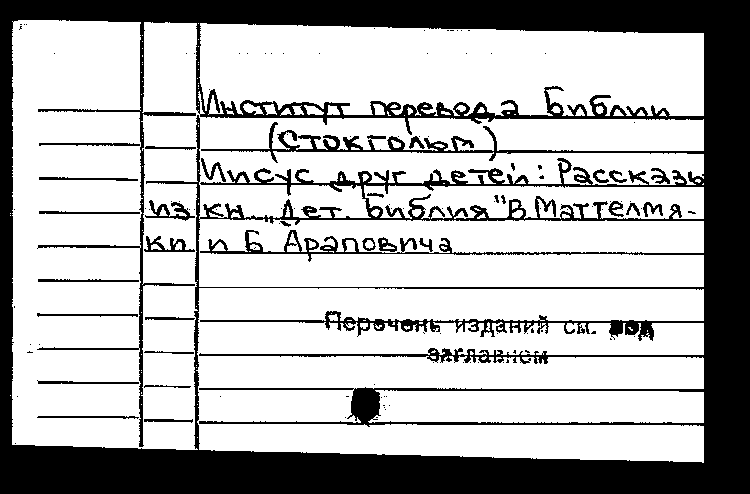 Институт перевода Библии
(Стокгольм)
Иисус друг детей: Рассказы
из кн. „Дет. Библия" В. Маттелмя-
ки и Б. Араповича
Перечень изданий см. под
заглавием